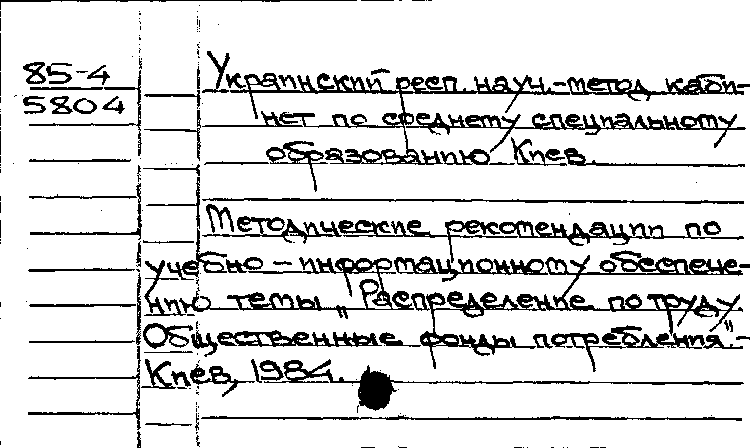 85-4
5804
Украинский респ. науч.-метод. каби-
нет по среднему специальному
образованию. Киев.
Методические рекомендации по
учебно-информационному обеспече-
нию темы „Распределение по труду.
Общественные фонды потребления".-
Киев, 1984.